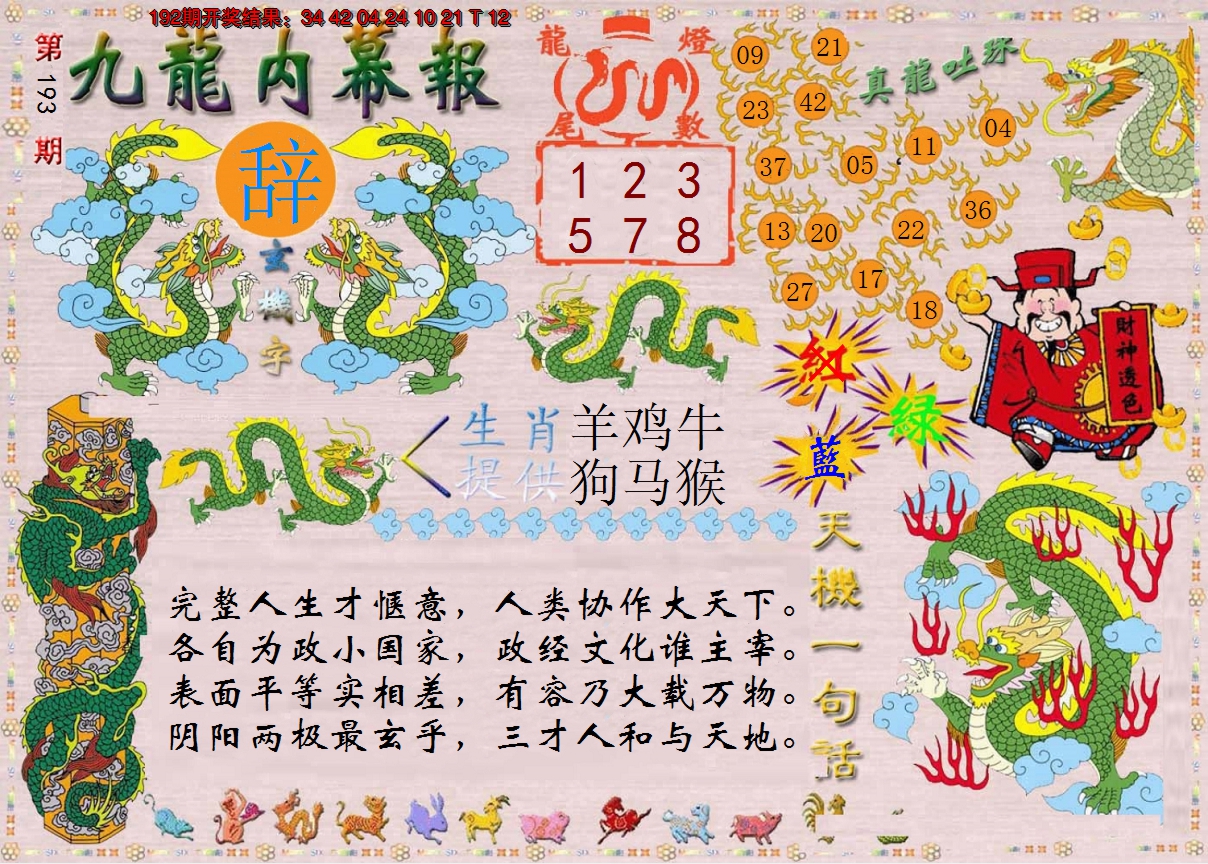 192期开奖结果：34 42 04 24 10 21 T 12
第193期
九龍内幕報
辞
玄機字
龍燈
尾數
1 2 3
5 7 8
真龍吐珠
09
21
23
42
11
04
37
05
36
13
20
22
27
17
18
紅
綠
藍
財神透色
生肖 羊鸡牛
提供 狗马猴
天機一句話
完整人生才惬意，人类协作大天下。
各自为政小国家，政经文化谁主宰。
表面平等实相差，有容乃大载万物。
阴阳两极最玄乎，三才人和与天地。